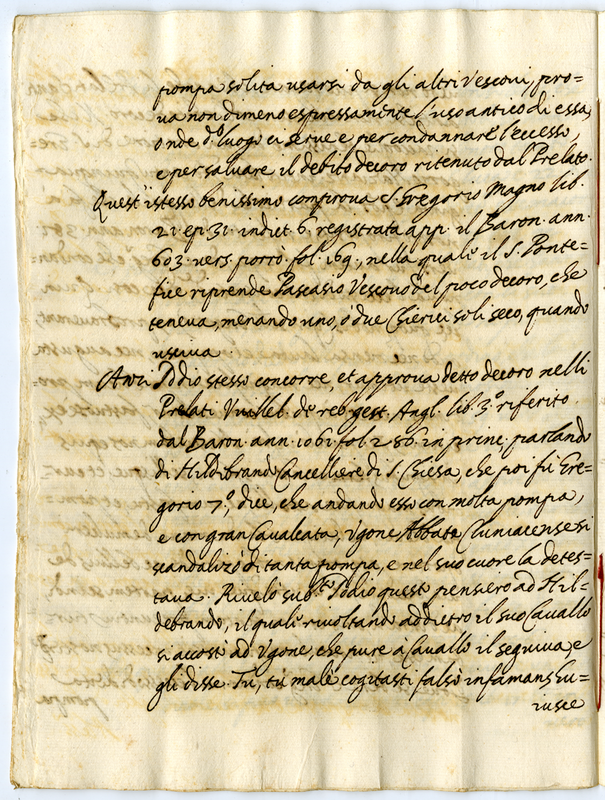 pompa solita usarsi da gli altri Vescovi, pro=
va non dimeno espressamente l'uso antico di essa,
onde d.º luogo ci serve e per condannare l'eccesso,
e per salvare il debito decoro ritenuto dal Prelato.
Quest'istesso benissimo comprova S. Gregorio Magno lib.
21. ep. 31. indict. 6. registrata app. il Baron. ann.
603. vers. porrò. fol. 169., nella quale il S. Ponte=
fice riprende Pascasio Vescovo del poco decoro, che
teneva, menando uno, ò due Chierici soli seco, quando
usciva.
Anzi Iddio stesso concorre, et approva detto decoro nelli
Prelati Vuillel. de reb. gest. Angl. lib. 3.º riferito
dal Baron. ann. 1061. fol. 286. in princ. parlando
di Hildibrando Cancelliere di S. Chiesa, che poi fù Gre=
gorio 7.º, dice, che andando esso con molta pompa,
e con gran Cavalcata, Vgone Abbate Cluniacense si
scandalizò di tanta pompa, e nel suo cuore la detes=
tava. Rivelò sub.to Iddio questo pensiero ad Hil=
debrando, il quale rivoltando addietro il suo Cavallo
si accostò ad Vgone, che pure a Cavallo il seguiva, e
gli disse. Tu, tu male cogitasti falsò infamans hu=
iusce